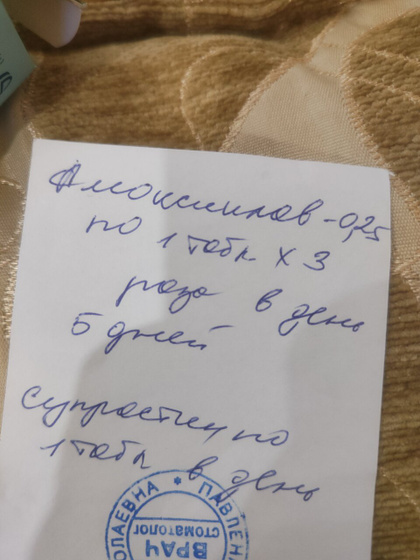 Амоксиклав - 0,25
по 1 табл. х 3
раза в день
5 дней
Супрастин по
1 табл в день
ОЛАЕВНА * ПАВЛЕН
ВРАЧ
СТОМАТОЛОГ